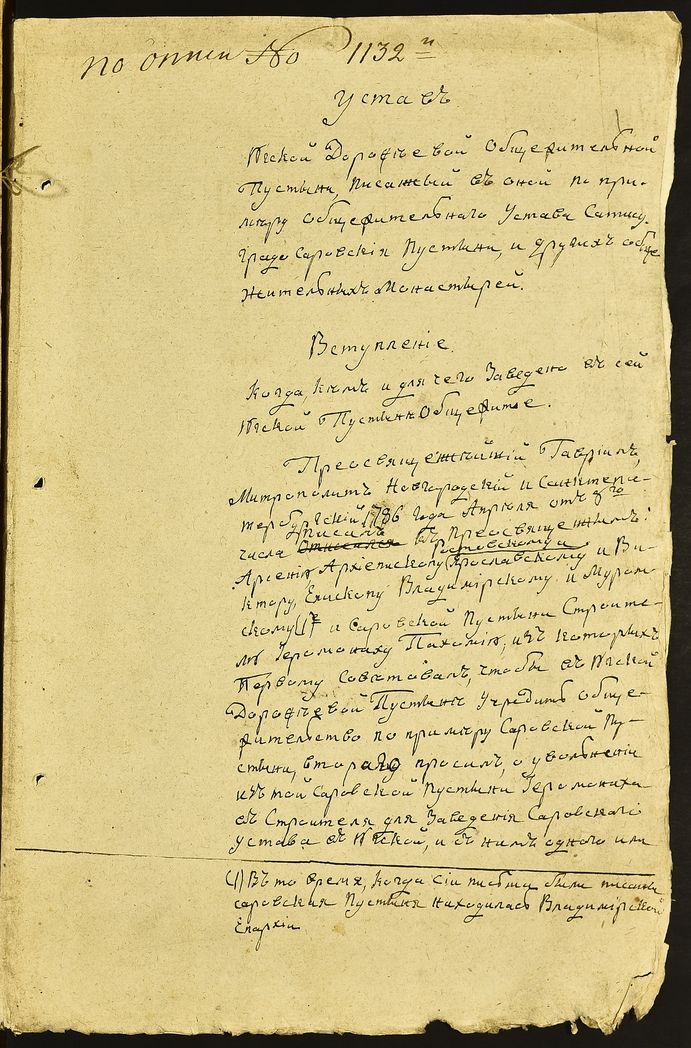 по описи No 1132 й
Уставъ
Югской Дорофеевой Общежительной
Пустыни, писанный въ оной по при-
мѣру общежительнаго Устава Сатису-
градо Саровскія Пустыни, и другихъ обще
жительныхъ Монастырей.
Вступленіе
Когда, кѣмъ и для чего Заведено въ сей
Югской Пустыни Общежитіе.
Преосвященнѣйшій Гавріилъ,
Митрополитъ Новгородскій и Санктпе-
тербургскій 1786 года Апрѣля отъ 8го
писалъ
числа Отнесся къ Преосвященнымъ:
Ростовскому и
Арсенію Архіепископу Ярославскому и Ви-
ктору, Епископу Владимірскому и Муром-
скому(1) и Саровской Пустыни Строите-
лю Іеромонаху Пахомію, изъ которыхъ
Первому Совѣтовалъ, чтобы въ Югской
Дорофеевой Пустынѣ Учредить Обще-
жительство по примѣру Саровской Пу-
стыни, втораго просилъ, о увольненіи
изъ той Саровской Пустыни Іеромонаха
въ Строителя для Заведенія Саровскаго
устава въ Югской, и съ нимъ одного или
(1) Въ то время, когда сіи письма были писаны
Саровская Пустыня находилась Владимірской
Епархіи